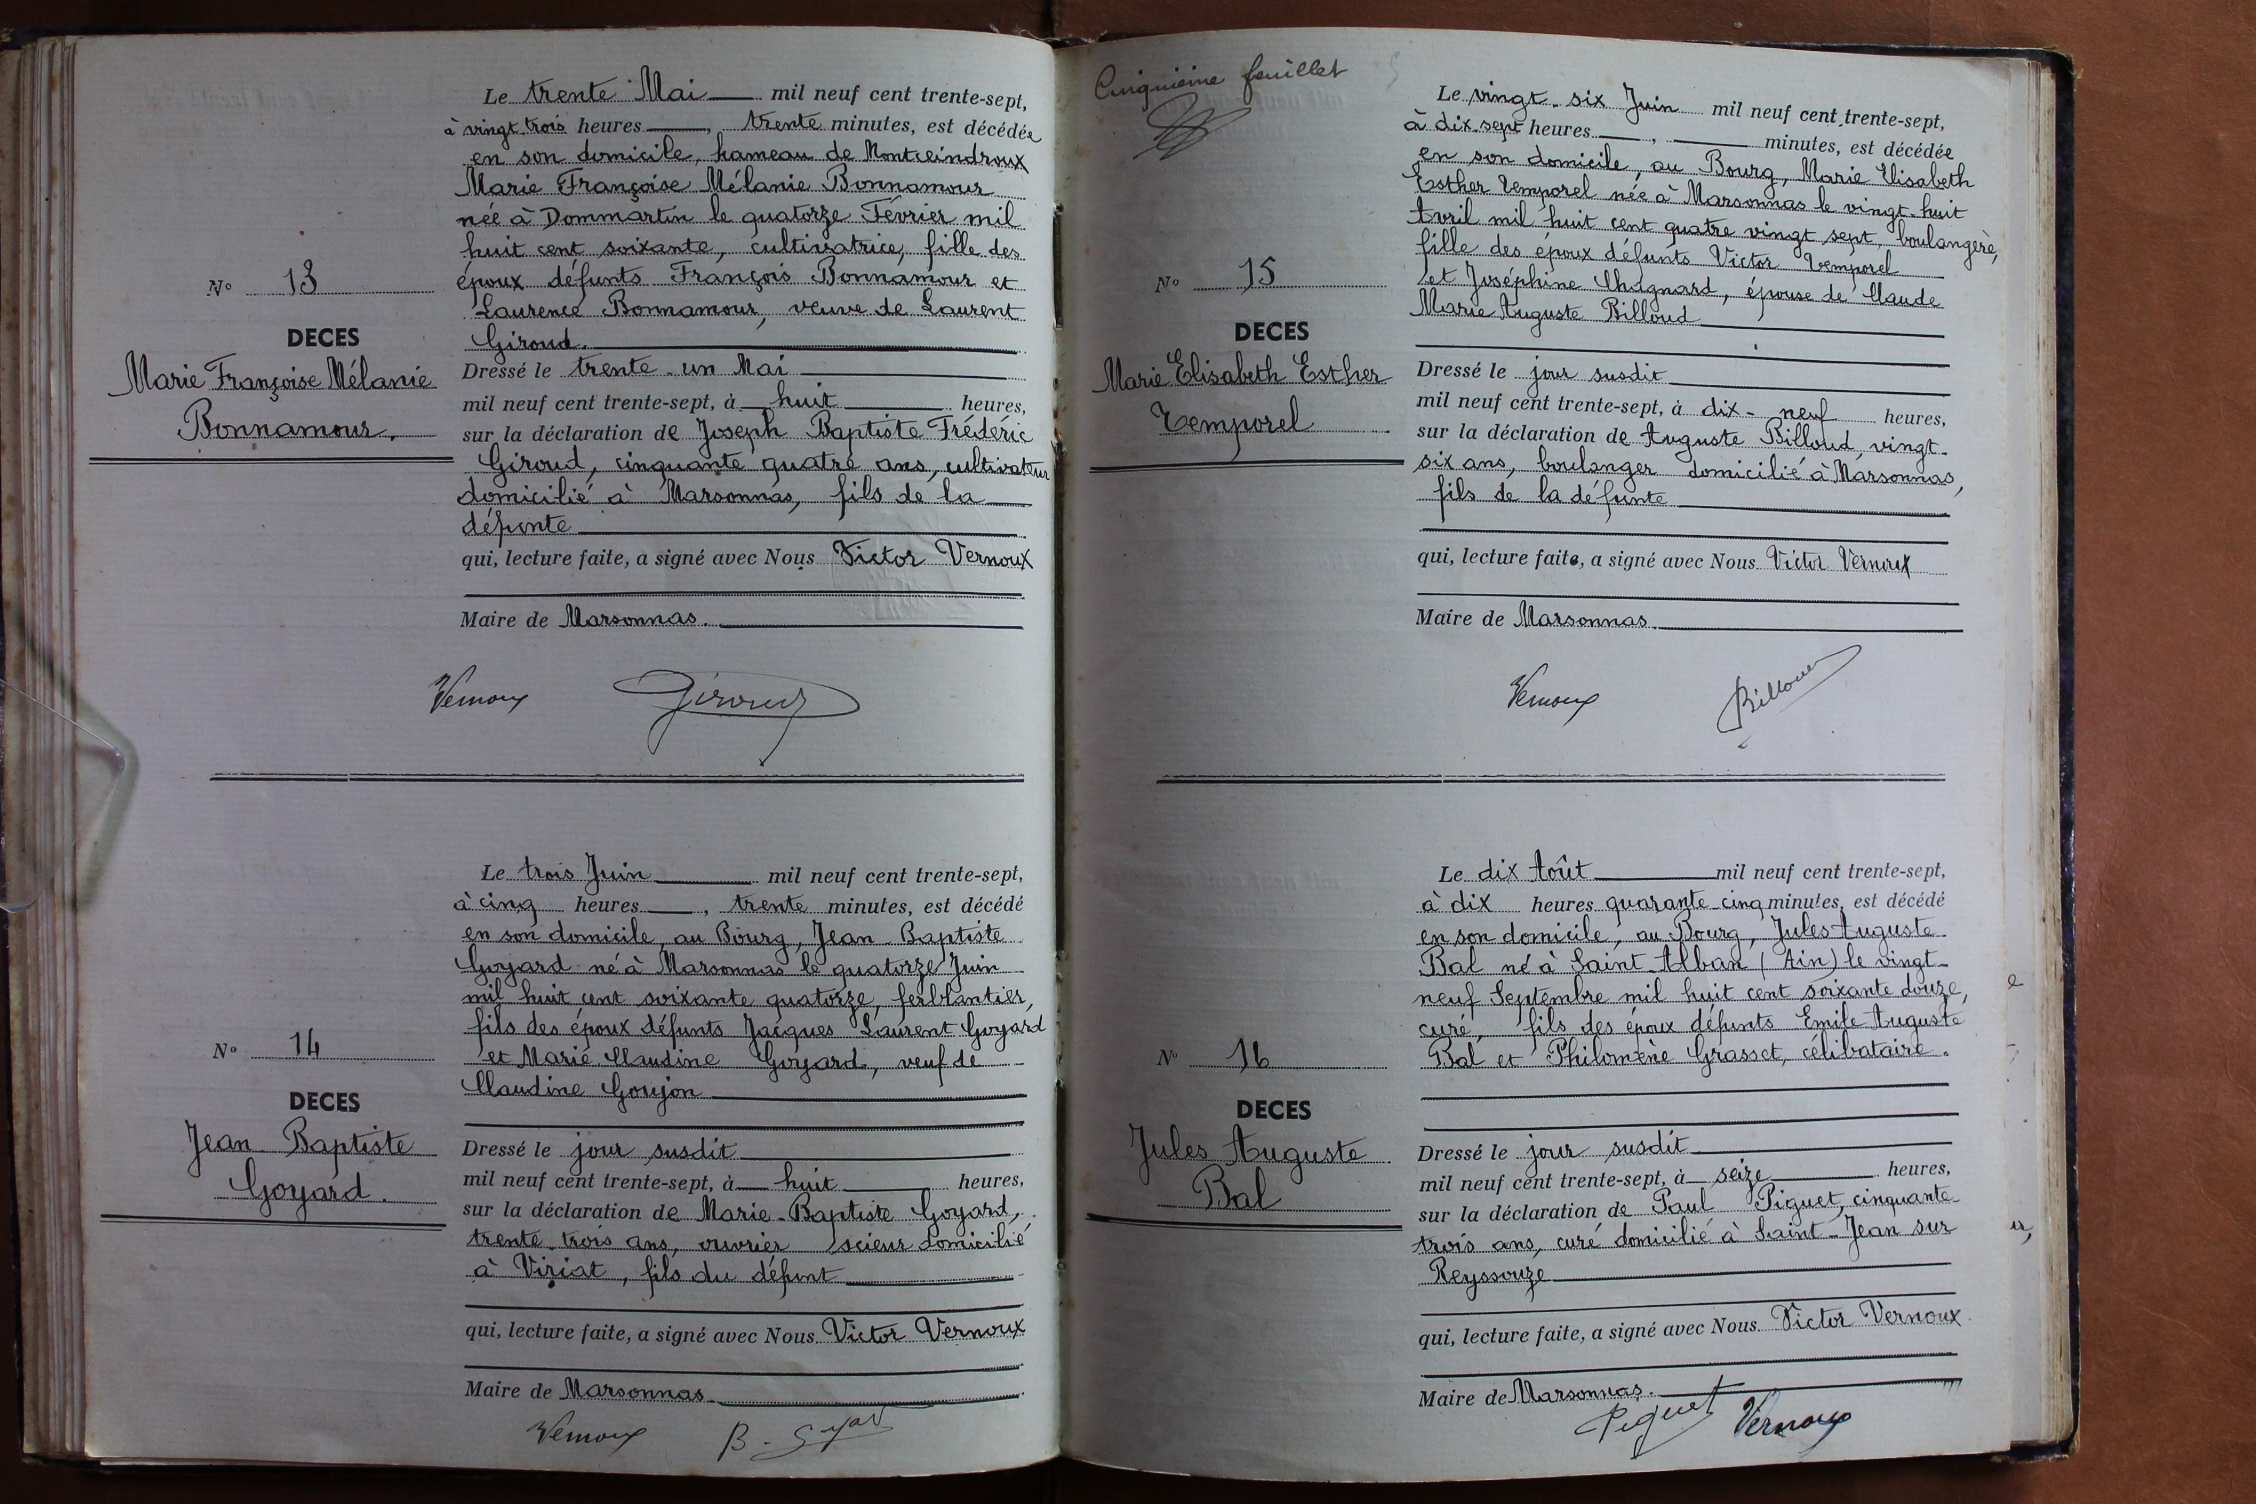 Le trente Mai mil neuf cent trente-sept,
à vingt trois heures, trente minutes, est décédée
en son domicile, hameau de Montceindroux
Marie Françoise Mélanie Bonnamour
née à Dommartin le quatorze Février mil
huit cent soixante, cultivatrice, fille des
N° 13
époux défunts François Bonnamour et
Laurence Bonnamour, veuve de Laurent
Giroud.
DECES
Marie Françoise Mélanie
Bonnamour.
Dressé le trente-un Mai
mil neuf cent trente-sept, à huit heures,
sur la déclaration de Joseph Baptiste Fréderic
Giroud, cinquante quatre ans, cultivateur
domicilié à Marsonnas, fils de la
défunte
qui, lecture faite, a signé avec Nous Victor Vernoux
Maire de Marsonnas.
Vernoux Giroud
Le trois Juin mil neuf cent trente-sept,
à cinq heures, trente minutes, est décédé
en son domicile, au Bourg, Jean-Baptiste
Goyard né à Marsonnas le quatorze Juin
mil huit cent soixante quatorze, ferblantier,
fils des époux défunts Jacques Laurent Goyard
N° 14
et Marie Claudine Goyard, veuf de
Claudine Goujon
DECES
Jean-Baptiste
Goyard.
Dressé le jour susdit
mil neuf cent trente-sept, à huit heures,
sur la déclaration de Marie-Baptiste Goyard,
trente-trois ans, ouvrier scieur domicilié
à Viriat, fils du défunt
qui, lecture faite, a signé avec Nous Victor Vernoux
Maire de Marsonnas
Vernoux B. Goyard
Cinquième feuillet
Le vingt-six Juin mil neuf cent trente-sept,
à dix-sept heures, minutes, est décédée
en son domicile, au Bourg, Marie Elisabeth
Esther Temporel née à Marsonnas le vingt-huit
Avril mil huit cent quatre vingt sept, boulangère,
fille des époux défunts Victor Temporel
N° 15
et Joséphine Chognard, épouse de Claude
Marie Auguste Billoud
DECES
Marie Elisabeth Esther
Temporel
Dressé le jour susdit
mil neuf cent trente-sept, à dix-neuf heures,
sur la déclaration de Auguste Billoud, vingt-
six ans, boulanger domicilié à Marsonnas,
fils de la défunte
qui, lecture faite, a signé avec Nous Victor Vernoux
Maire de Marsonnas.
Vernoux Billoud
Le dix Août mil neuf cent trente-sept,
à dix heures quarante-cinq minutes, est décédé
en son domicile, au Bourg, Jules Auguste
Bal né à Saint-Alban (Ain) le vingt-
neuf Septembre mil huit cent soixante douze,
curé, fils des époux défunts Emile Auguste
N° 16
Bal et Philomène Grasset, célibataire.
DECES
Jules Auguste
Bal
Dressé le jour susdit
mil neuf cent trente-sept, à seize heures,
sur la déclaration de Paul Piguet, cinquante-
trois ans, curé domicilié à Saint-Jean sur
Reyssouze
qui, lecture faite, a signé avec Nous Victor Vernoux
Maire de Marsonnas.
Piguet Vernoux